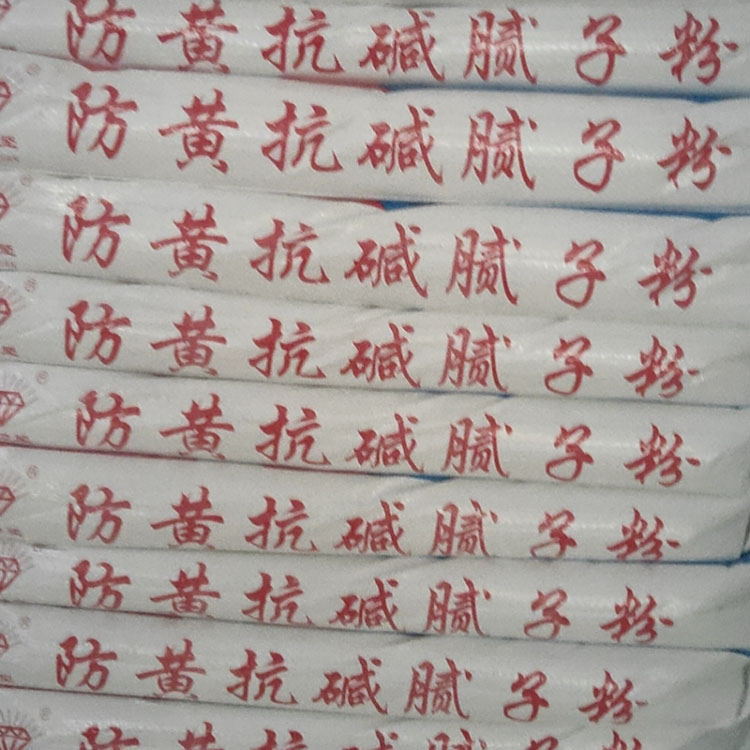 防黄抗碱腻子粉
防黄抗碱腻子粉
防黄抗碱腻子粉
防黄抗碱腻子粉
防黄抗碱腻子粉
防黄抗碱腻子粉
防黄抗碱腻子粉
防黄抗碱腻子粉
防黄抗碱腻子粉